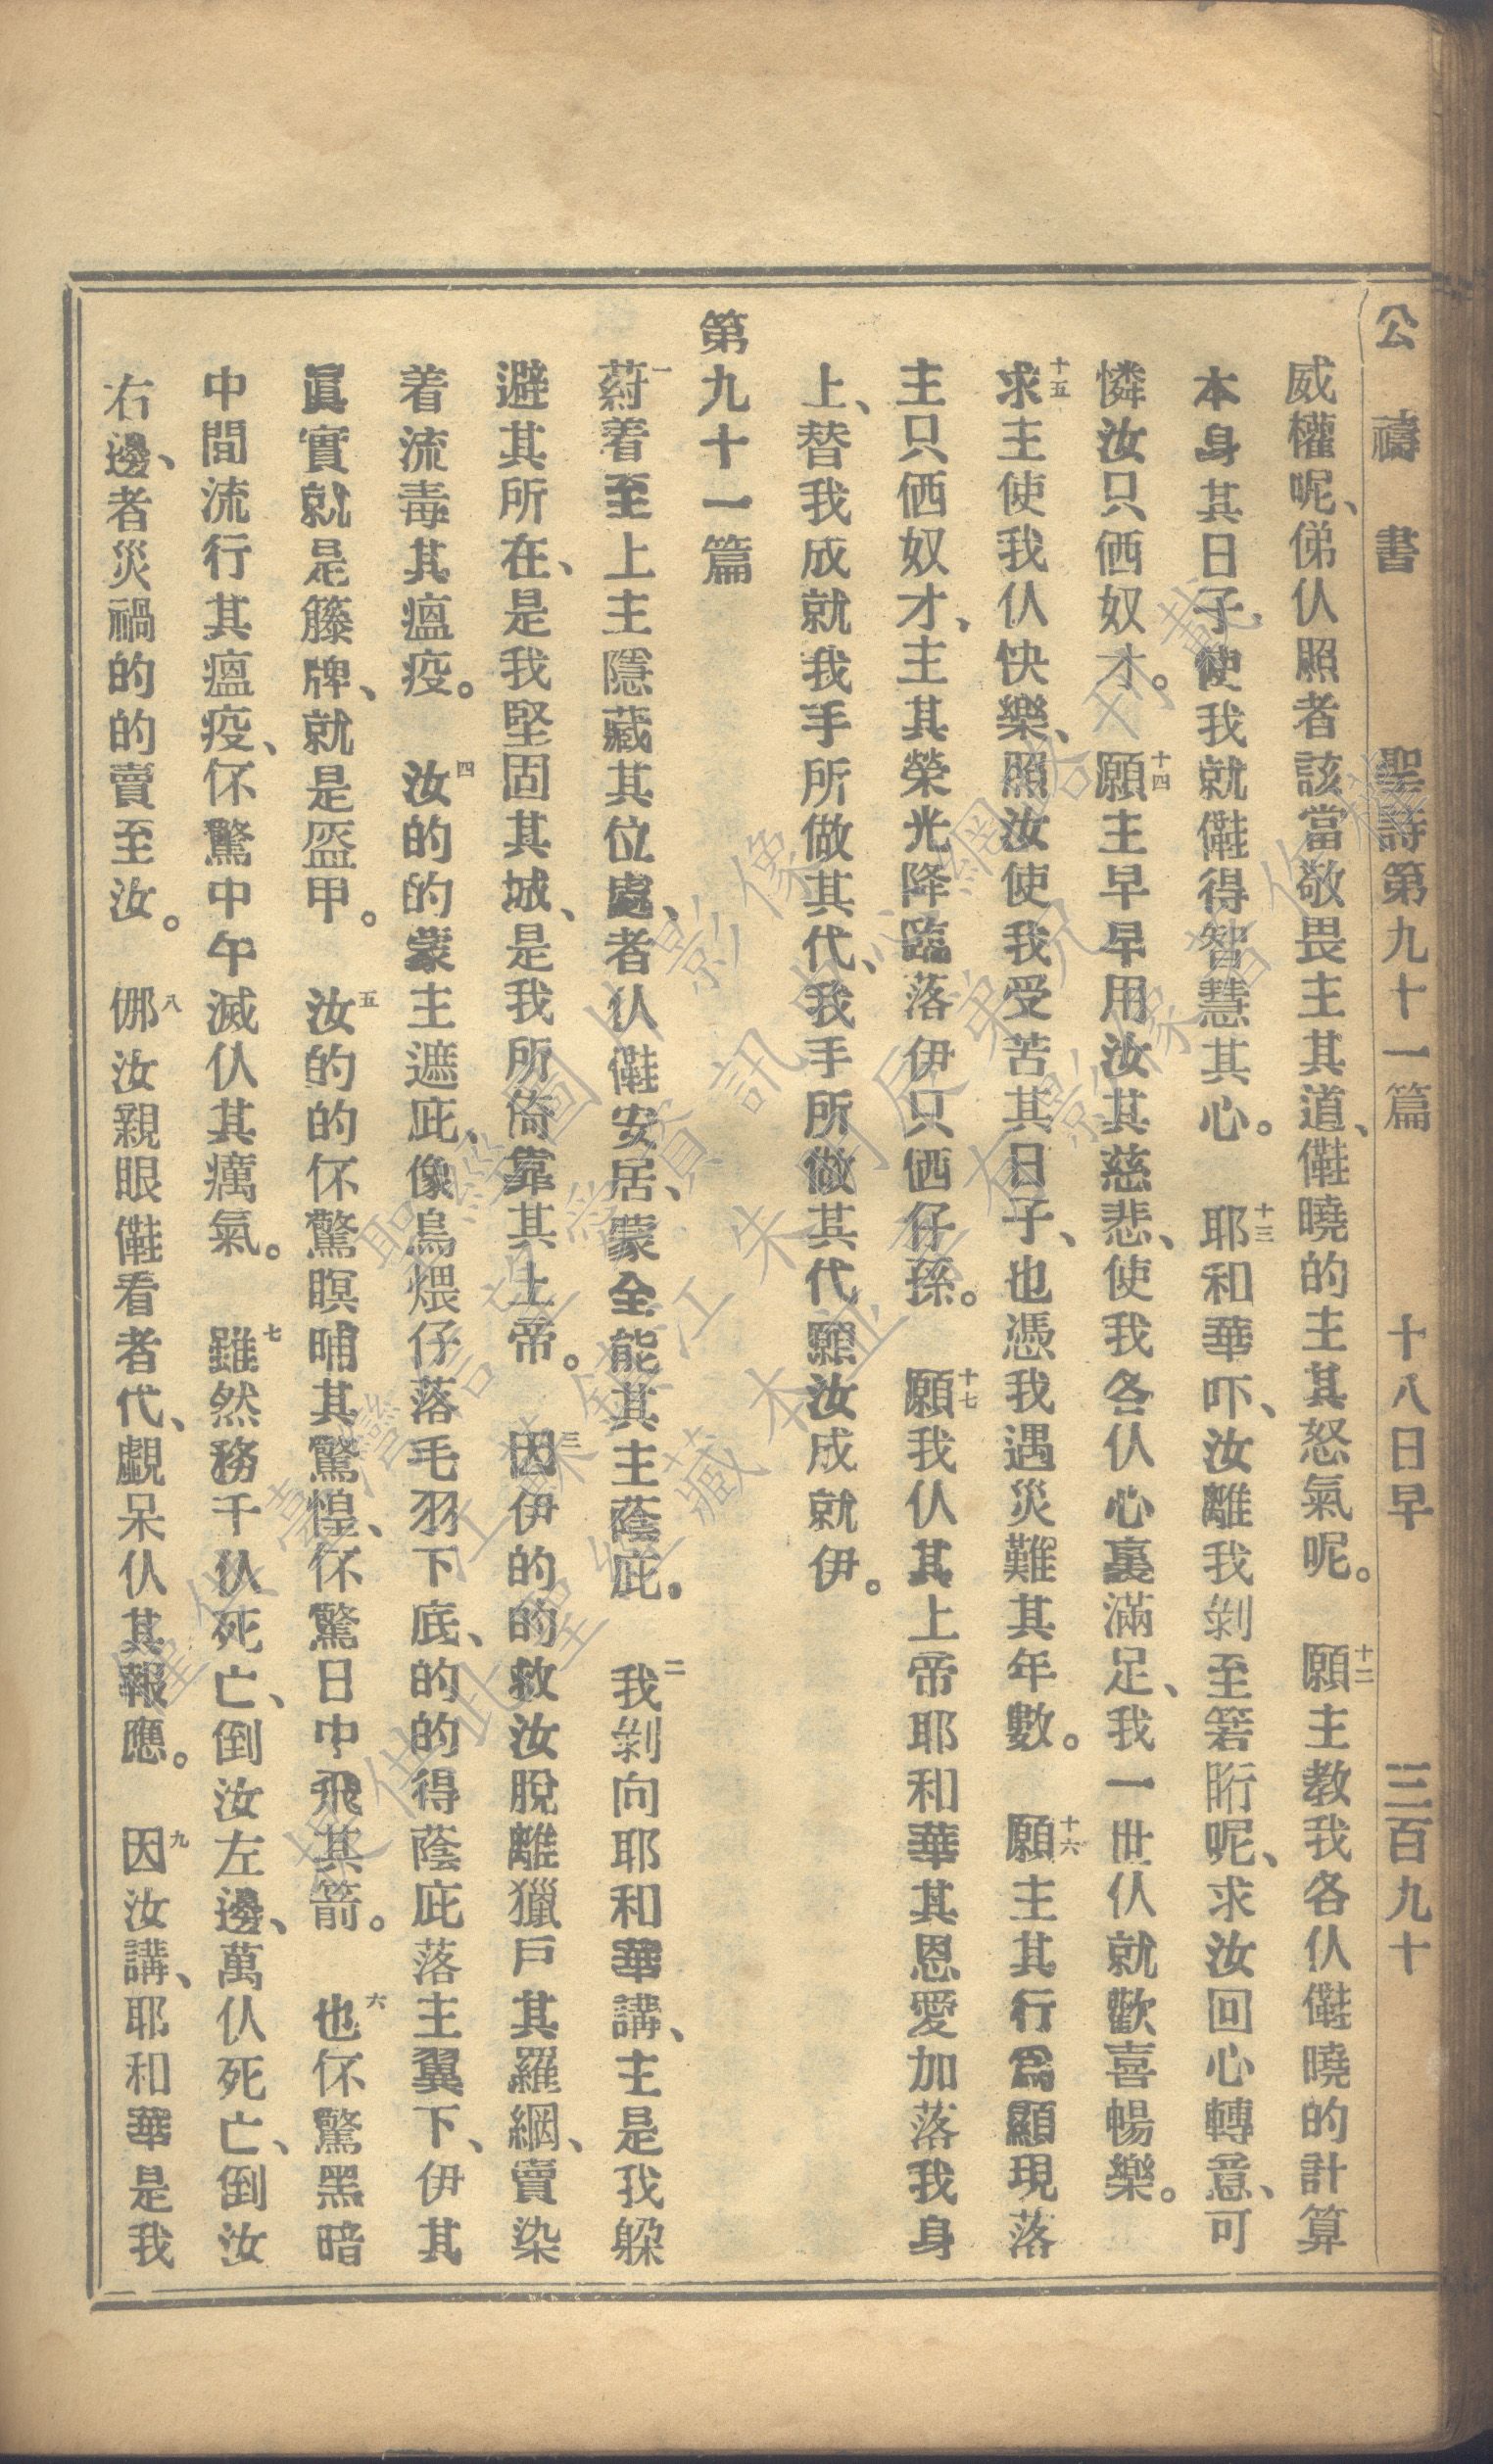 公禱書 聖詩第九十一篇 十八日早 三百九十
威權呢、俤仈照者該當敬畏主其道、𠆧曉的主其怒氣呢。 十二願主教我各仈𠆧曉的計算
本身其日子、使我就𠆧得智慧其心。 十三耶和華吓、汝離我剝至箬䀪呢、求汝回心轉意、可
憐汝只𠈁奴才。 十四願主早早用汝其慈悲、使我各仈心裏滿足、我一世仈就歡喜暢樂。
十五求主使我仈快樂、照汝使我受苦其日子、也憑我遇災難其年數。 十六願主其行爲顯現落
主只𠈁奴才、主其榮光降臨落伊只𠈁仔孫。 十七願我仈其上帝耶和華其恩愛加落我身
上、替我成就我手所做其代、我手所做其代願汝成就伊。
第九十一篇
一葤着至上主隱藏其位處、者仈𠆧安居、蒙全能其主蔭庇。 二我剝向耶和華講、主是我躲
避其所在、是我堅固其城、是我所倚靠其上帝。 三因伊的的救汝脫離獵戶其羅網、賣染
着流毒其瘟疫。 四汝的的蒙主遮庇、像鳥煨仔落毛羽下底、的的得蔭庇落主翼下、伊其
眞實就是籐牌、就是盔甲。 五汝的的伓驚瞑晡其驚惶、伓驚日中飛其箭。 六也伓驚黑暗
中間流行其瘟疫、伓驚中午滅仈其癘氣。 七雖然務千仈死亡、倒汝左邊、萬仈死亡、倒汝
右邊、者災禍的的賣至汝。 八㑚汝親眼𠆧看者代、覷呆仈其報應。 九因汝講、耶和華是我